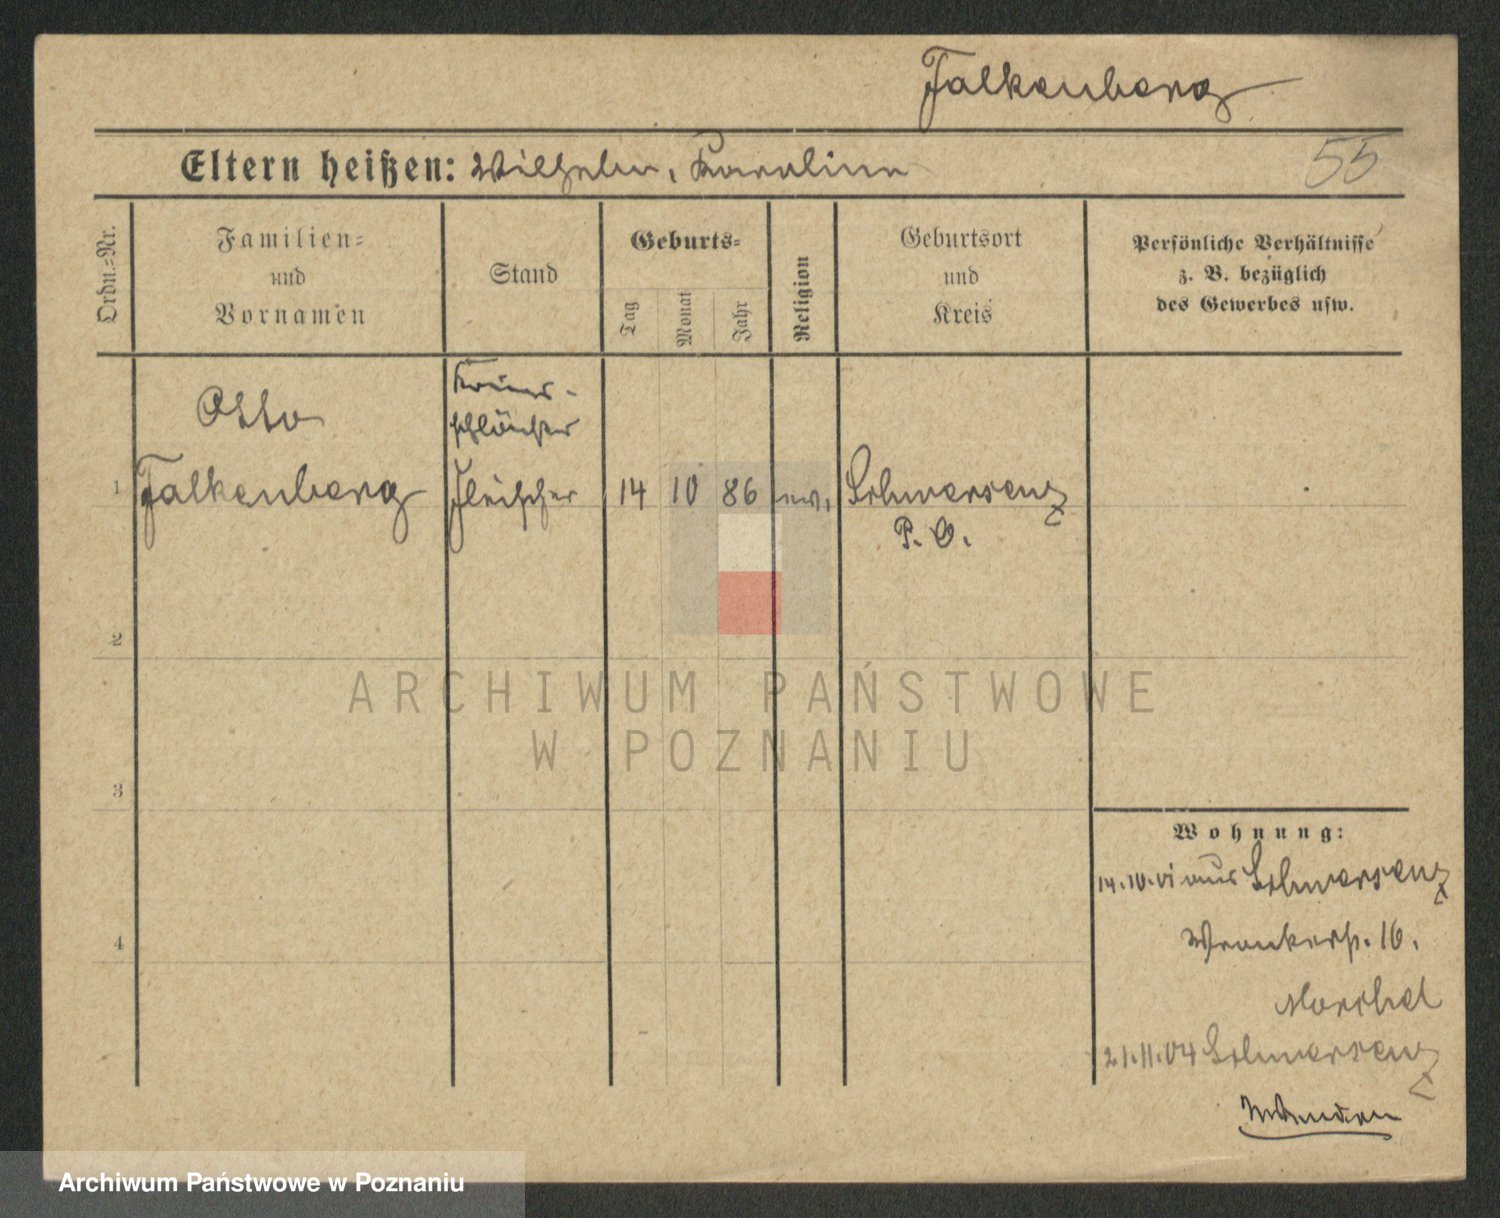 Falkenberg
Eltern heißen: Wilhelm, Karoline
55
Ordn.-Nr.
Familien-
und
Vornamen
Stand
Geburts-
Tag
Monat
Jahr
Religion
Geburtsort
und
Kreis
Persönliche Verhältnisse
z. B. bezüglich
des Gewerbes usw.
Otto
1 Falkenberg Fleischer 14 10 86 ev. Schwersenz
P. O.
2
3
4
Wohnung:
14.10.01 aus Schwersenz
Wronkerstr. 16.
21.11.04 Schwersenz
ARCHIWUM PAŃSTWOWE
W POZNANIU
Archiwum Państwowe w Poznaniu